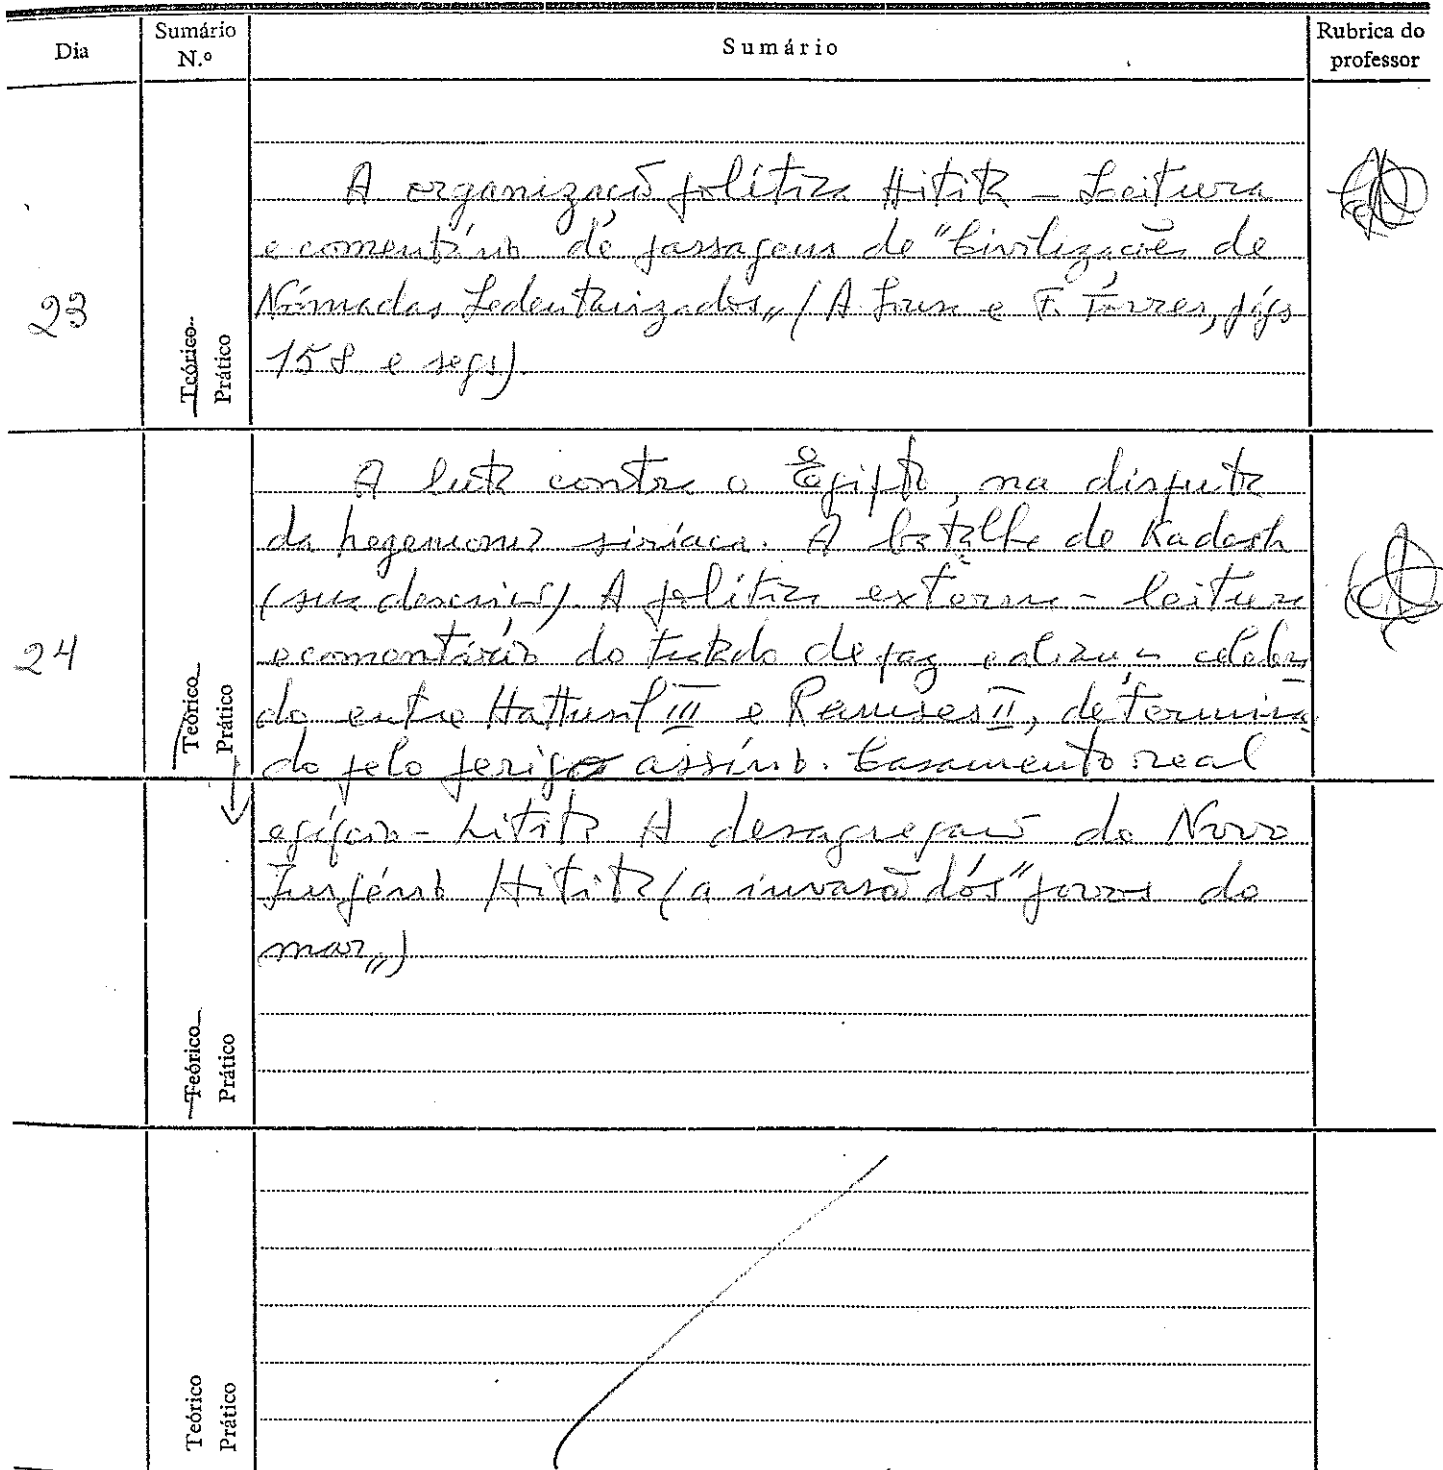 Dia
Sumário N.º
Sumário
Rubrica do professor
23
Teórico
Prático
A organização política Hitita – Leitura
e comentário de passagens de "Civilizações de
Nómadas Sedentarizados„ (A. e F. Torres, págs
158 e segs).
24
Teórico
Prático
A luta contra o Egipto, na disputa
da hegemonia siríaca. A batalha de Kadesh
(sua descrição). A política externa – leitura
e comentário do tratado de paz e aliança celebra
do entre Hattusil III e Ramses II, determina
do pelo perigo assírio. Casamento real
egípcio-hitita A desagregação do Novo
Império Hitita (a invasão dos "povos do
mar„).
Teórico
Prático
Teórico
Prático